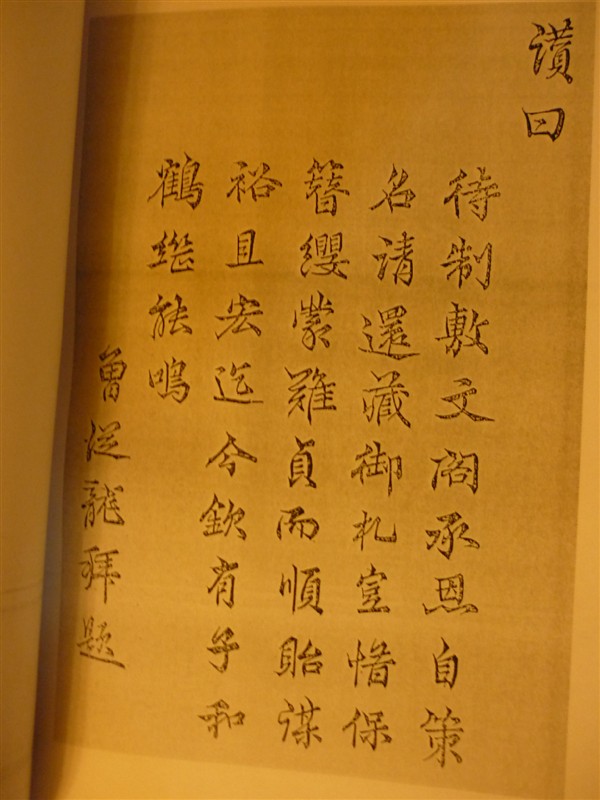 讚曰
待制敷文閣承恩自策
名請還藏御札豈惜保
簪纓蒙難貞而順貽謀
裕且宏迄今欽有子和
鶴繼能鳴
曾從龍拜題